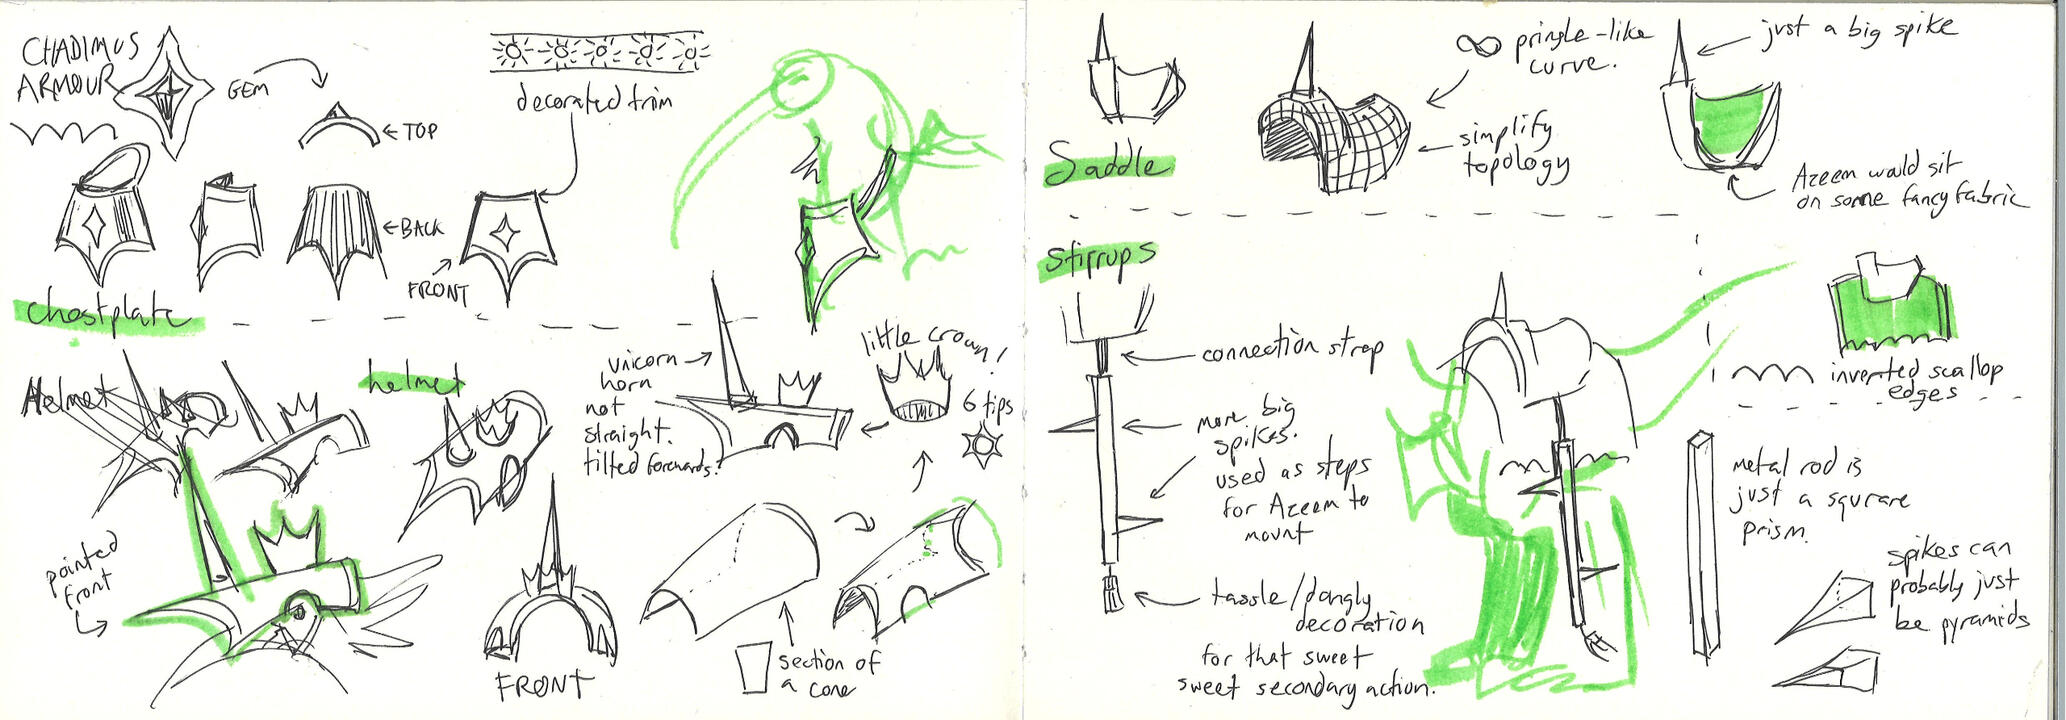 CHADIMUS
ARMOUR
GEM
TOP
BACK
FRONT
decorated trim
chestplate
Helmet
helmet
pointed
front
FRONT
unicorn
horn
not
straight.
tilted forwards.
little crown!
6 tips
section of
a cone
Saddle
pringle-like
curve.
simplify
topology
just a big spike
Azeem would sit
on some fancy fabric
Stirrups
connection strap
more big
spikes.
used as steps
for Azeem to
mount
tassle/dangly
decoration
for that sweet
sweet secondary action.
inverted scallop
edges
metal rod is
just a squrare
prism.
spikes can
probably just
be pyramids